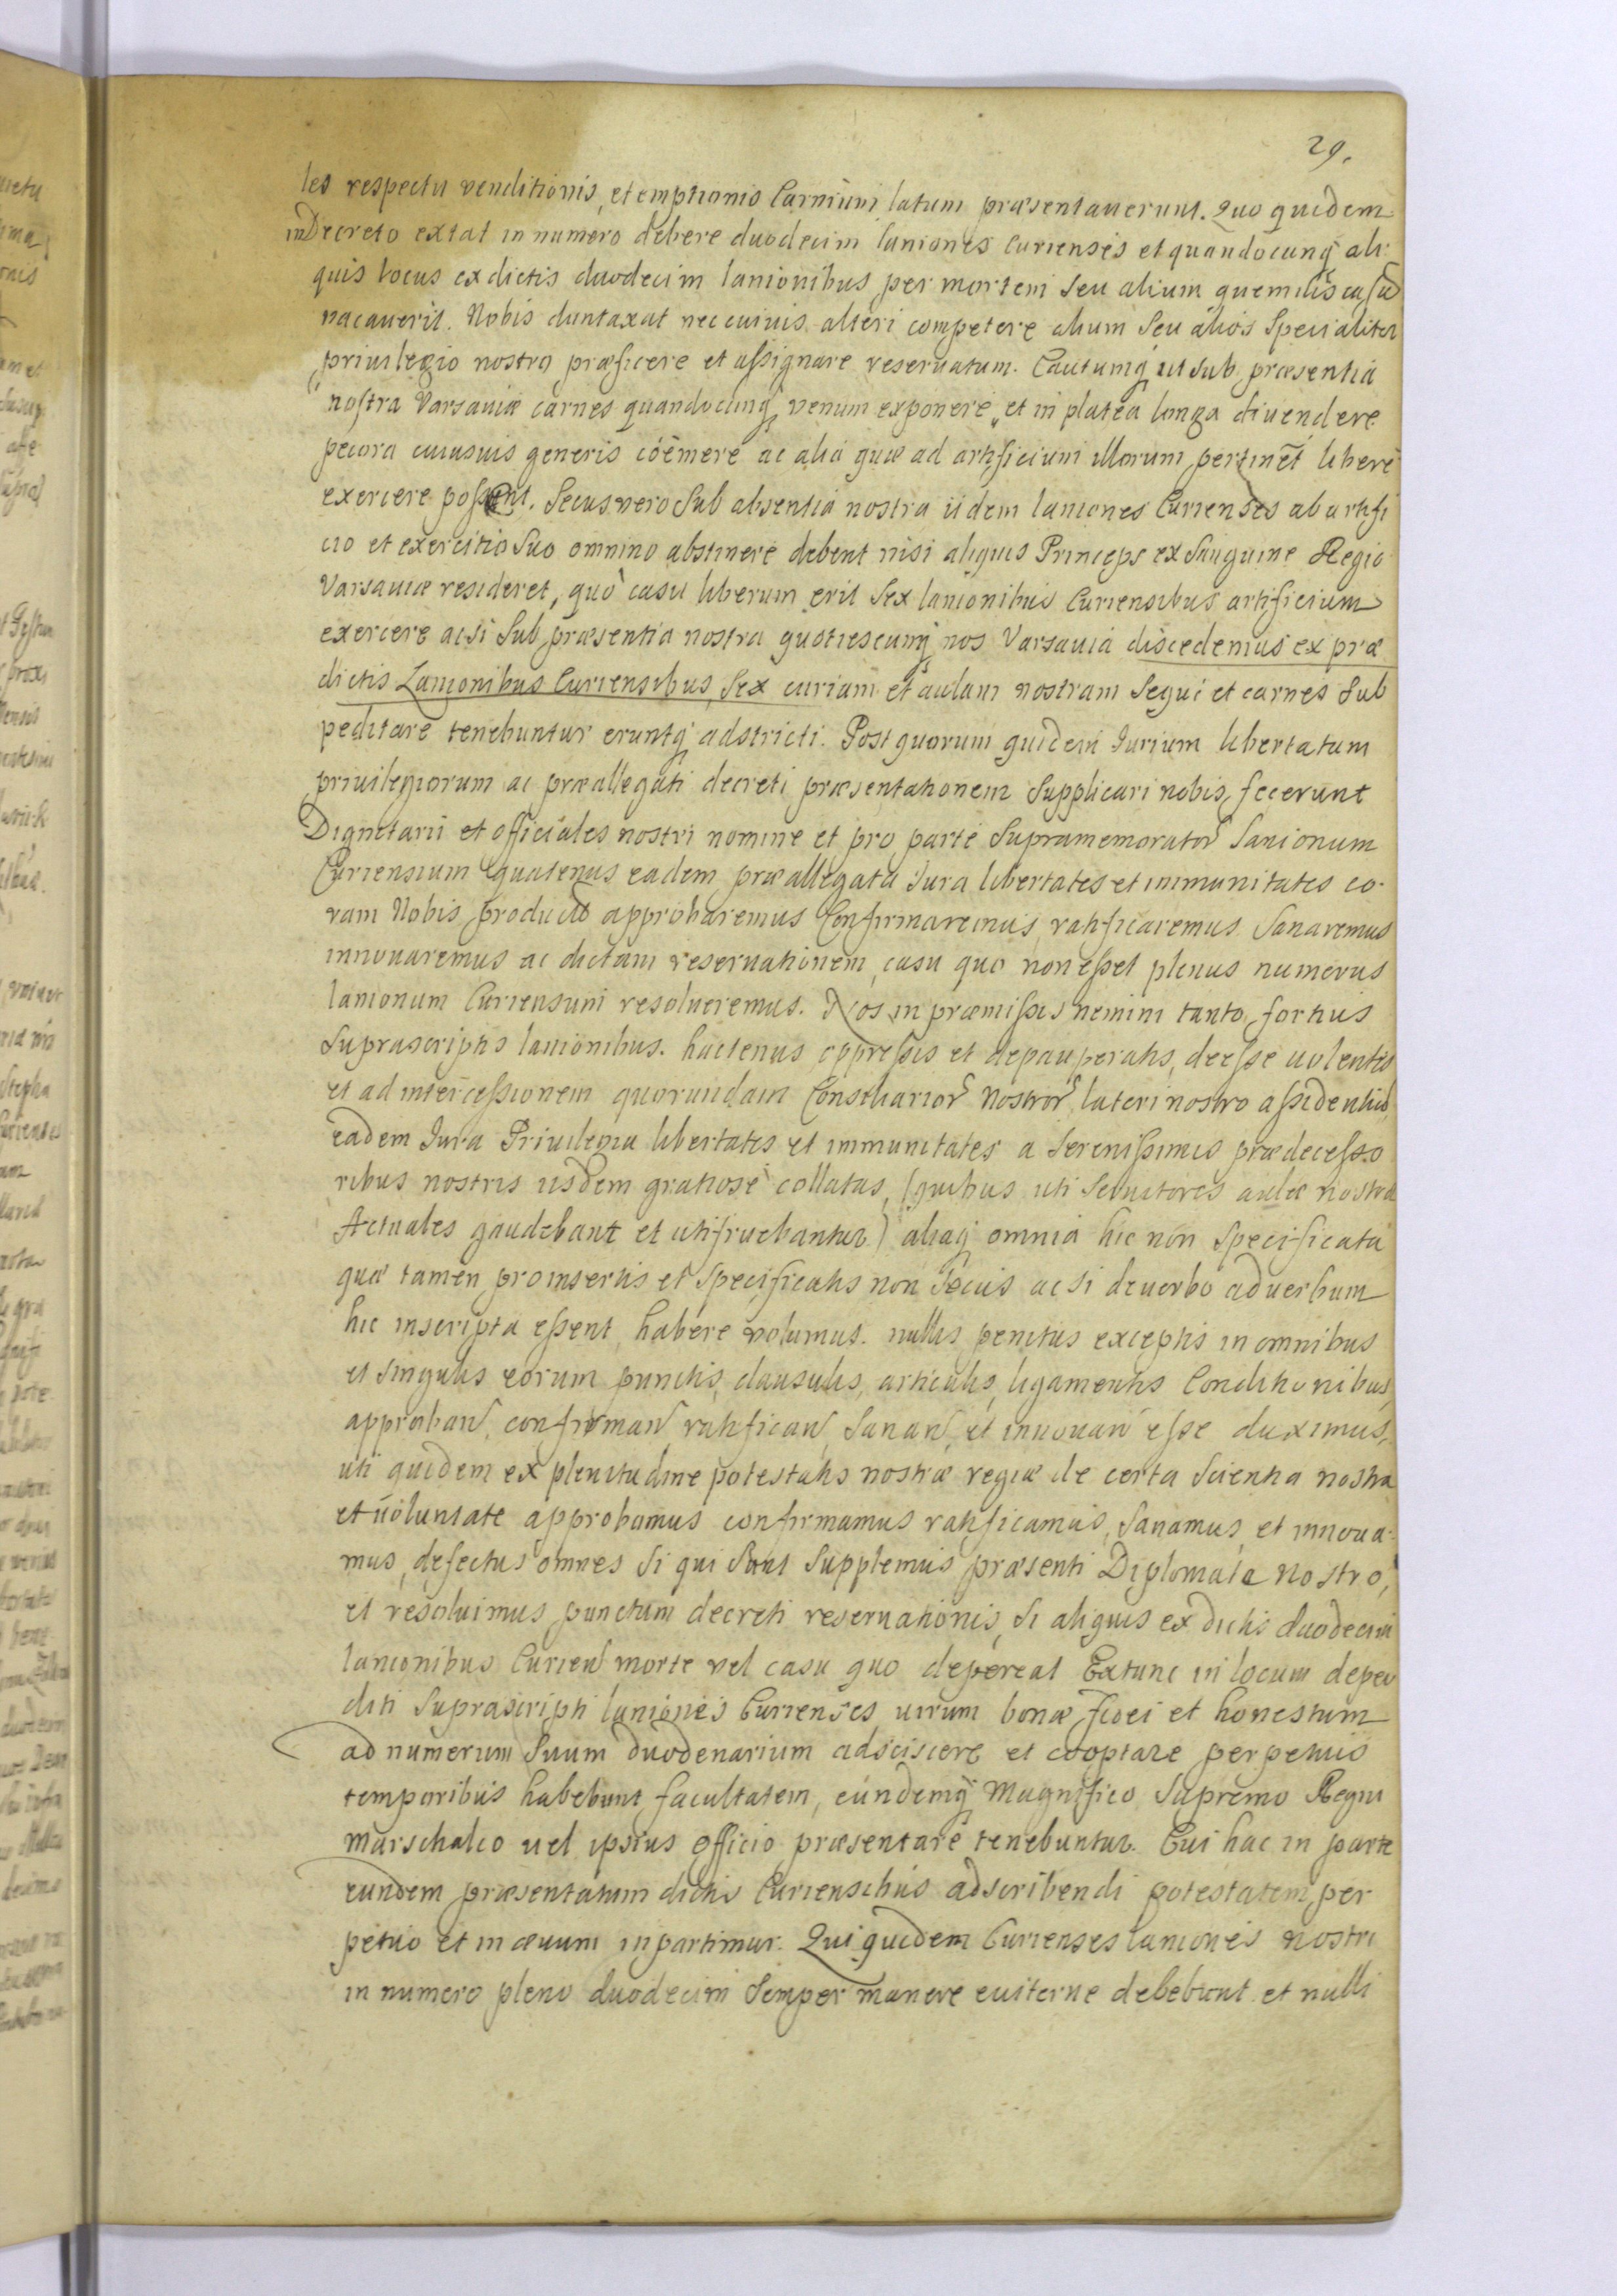 29.
les respectu venditionis, et emptionis Carnium latum præsentauerunt. Quo quidem
in Decreto extat in numero debere duodecim laniones Curienses et quandocunq ali
quis locus ex dictis duodecim lanionibus per mortem seu alium quemuis casu
vacauerit. Nobis duntaxat nec cuiuis alteri competere alium seu alios specialiter
priuilegio nostro præficere et assignare reseruatum. Cautumq ut sub præsentia
nostra Varsauiæ carnes quandocunq venum exponere, et in platea longa diuendere
pecora cuiusuis generis coëmere ac alia quæ ad artificium illorum pertinet libere
exercere possent. Secus vero sub absentia nostra iidem laniones Curienses ab artifi
cio et exercitio suo omnino abstinere debent nisi aliquis Princeps ex sanguine Regio
Varsauiæ resideret, quo casu liberum erit sex lanionibus Curiensibus artificium
exercere ac si sub præsentia nostra quotiescunq nos Varsauia discedemus ex præ
dictis Lanionibus Curiensibus, sex curiam et aulam nostram sequi et carnes sub
peditare tenebuntur eruntq adstricti. Post quorum quidem Iurium libertatum
priuilegiorum ac præallegati decreti præsentationem supplicari nobis fecerunt
Dignitarii et officiales nostri nomine et pro parte supramemorator lanionum
Curiensium quatenus eadem præallegata iura libertates et immunitates co
ram Nobis producto approbaremus Confirmaremus, ratificaremus sanaremus
innouaremus ac dictam reseruationem, casu quo non esset plenus numerus
lanionum Curiensium resolueremus. Nos in præmissis nemini tanto fortius
suprascriptis lanionibus. hactenus oppressis et depauperatis, deesse uolentes
et ad intercessionem quorundam Consiliarior Nostror lateri nostro assidentium
eadem Iura Priuilegia libertates et immunitates a Serenissimis prædecesso
ribus nostris iisdem gratiose collatas, (quibus uti seruitores aulæ nostræ
Actuales gaudebant et utifruebantur) aliaq omnia hic non specificata
quæ tamen pro insertis et specificatis non secus ac si de uerbo ad uerbum
hic inscripta essent, habere volumus. nullis penitus exceptis in omnibus
et singulis eorum punctis, clausulis, articulis, ligamentis Conditionibus,
approban, confirman ratifican, sanan, et innouan esse duximus,
uti quidem ex plenitudine potestatis nostræ regiæ de certa scientia nostra
et uoluntate approbamus confirmamus ratificamus, sanamus, et innoua
mus, defectus omnes si qui sunt supplemus præsenti Diplomate Nostro,
et resoluimus punctum decreti reseruationis, si aliquis ex dictis duodecim
lanionibus Curien morte vel casu quo depereat Extunc in locum deper
diti suprascripti laniones Curienses, uirum bonæ fidei et honestum
ad numerum suum duodenarium adsciscere et cooptare perpetuis
temporibus habebunt facultatem, eundemq Magnifico Supremo Regni
Marschalco uel ipsius Officio præsentare tenebuntur. Cui hac in parte
eundem præsentatum dictis Curiensibus adscribendi potestatem per
petuo et in æuum inpartimur. Qui quidem Curienses laniones nostri
in numero pleno duodecim semper manere euiterne debebunt et nulli